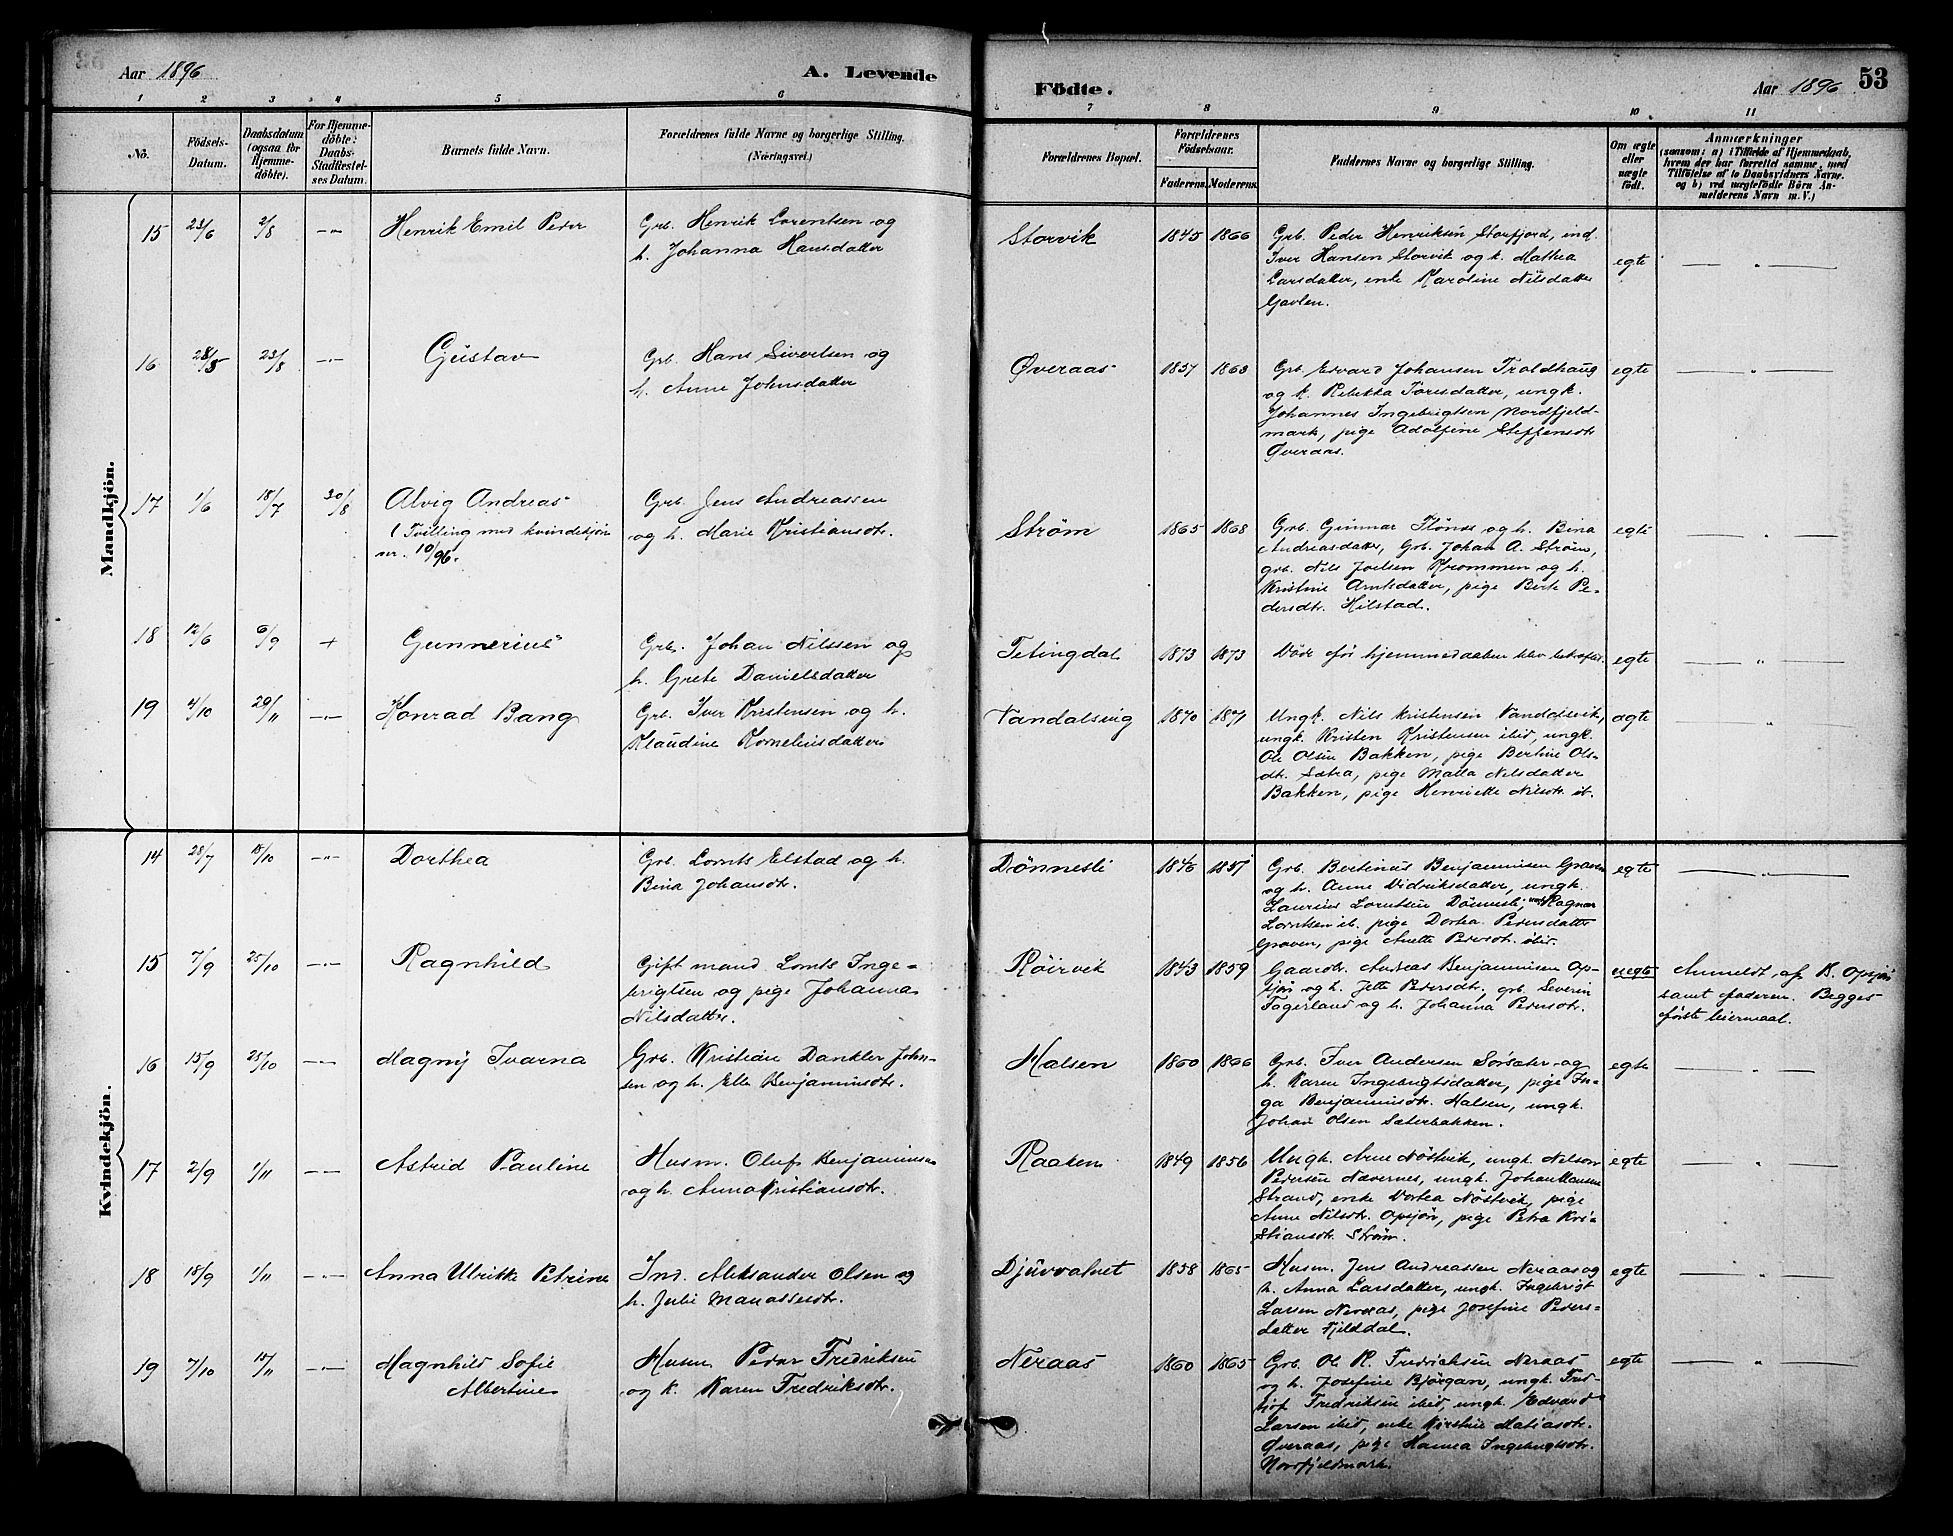 Aar 1896
A. Levende
Födte.
Aar 1896
53
1 2 3 4 5 6 7 8 9 10 11
No.
Födsels-
Datum.
Daabsdatum
(ogsaa for
Hjemme-
döbte).
For Hjemme-
döbte:
Daabs-
Stadfæstel-
ses Datum.
Barnets fulde Navn.
Forældrenes fulde Navne og borgerlige Stilling.
(Næringsvei.)
Forældrenes Bopæl.
Forældrenes
Födselsaar.
Faderens. Moderens.
Faddernes Navne og borgerlige Stilling.
Om ægte
eller
uægte
födt.
Anmærkninger
(saasom: a) i Tilfælde af Hjemmedaab,
hvem der har forrettet samme, med
Tilföielse af to Daabsvidners Navne,
og b) ved uægtefödte Börn An-
melderens Navn m. V.)
Mandkjön.
15 23/6 2/8 -"- Henrik Emil Peder
Grb. Henrik Lorentsen og
h. Johanna Hansdatter
Storvik 1845 1866
Grb. Peder Henriksen Storfjord, ind.
Iver Hansen Storvik og h. Mathea
Larsdatter, enke Karoline Nilsdatter
Gavlen.
egte — " —
16 28/5 23/8 -"- Gustav
Grb. Hans Sivertsen og
h. Anne Johnsdatter
Øveraas 1857 1863
Grb. Edvard Johansen Troldhaug
og h. Rebekka Toresdatter, ungk.
Johannes Ingebrigtsen Nordfjeld-
mark, pige Adolfine Steffensdtr
Øveraas.
egte — " —
17 1/6 18/7 30/8 Alvig Andreas
(Tvilling med kvindekjön
nr. 10/96.
Grb. Jens Andreassen
og h. Marie Kristiansdtr.
Strøm 1865 1868
Grb. Gunnar Flönes og h. Bina
Andreasdatter, Grb. Johan A. Strøm,
grb. Nils Joelsen Krommen og h.
Kristine Arntsdatter, pige Berte Pe-
dersdtr. Hilstad.
egte — " —
18 12/6 6/9 + Gunnerius
Grb. Johan Nilssen og
h. Grete Danielsdatter
Tetingdal 1873 1873
Döde för hjemmedaaben blev bekræftet.
egte — " —
19 4/10 29/11 -"- Konrad Bang
Grb. Iver Kristensen og h.
Klaudine Korneliusdatter
Vandalsvig 1870 1871
Ungk. Nils Kristensen Vandalsvik,
ungk. Kristen Kristensen ibid, ungk.
Ole Olsen Bakken, pige Bertine Ols-
dtr. Sætra, pige Malla Nilsdatter
Bakken, pige Henriette Nilsdtr. ib.
ægte — " —
Kvindekjön.
14 28/7 18/10 -"- Dorthea
Grb. Lornts Elstad og h.
Bina Johansdtr.
Dönnesli 1846 1857
Grb. Bertinus Benjaminsen Graven
og h. Anne Didriksdatter, ungk.
Laurius Lorntsen Dönnesli, ungk Ragnar
Lorntsen ib. pige Dortea Pedersdatter
Graven, pige Anette Pedersdtr. ibid.
egte — " —
15 7/9 25/10 -"- Ragnhild
Gift mand Lornts Inge-
brigtsen og pige Johanna
Nilsdatter.
Röirvik 1843 1859
Gaardbr. Andreas Benjaminsen Op-
sjön og h. Jette Pedersdtr., grb. Severin
Fagerland og h. Johanna Pedersdtr.
uegte
Anmeldt af B. Opsjön
samt faderen. Begges
förste leiermaal.
16 15/9 25/10 -"- Magny Ivarna
Grb. Kristian Dankler John-
sen og h. Elle Benjaminsdtr.
Halsen 1860 1866
Grb. Iver Andersen Sörsæter og
h. Karen Ingebrigtsdatter, pige In-
ga Benjaminsdtr. Halsen, ungk.
Johan Olsen Sæterbakken.
egte — " —
17 2/9 1/11 -"- Astrid Pauline
Husm. Oluf Benjaminsen
og h. Anna Kristiansdtr.
Raaken 1849 1856
Ungk. Arne Nöstvik, ungk. Nelson
Pedersen Nævernes, ungk. Johan Hansen
Strand, enke Dortea Nöstvik, pige
Anne Nilsdtr. Opsjön, pige Petra Kri-
stiansdtr. Strøm.
egte — " —
18 18/9 1/11 -"- Anna Ulrikke Petrine
Ind. Aleksander Olsen og
h. Julie Manassesdtr.
Djupvatnet 1858 1865
Husm. Jens Andreassen Neraas og
h. Anna Larsdatter, ungk. Ingebrigt
Larsen Neraas, pige Josefine Peders-
datter Fjelddal.
egte — " —
19 7/10 15/11 -"- Magnhild Sofie
Albertine
Husm. Peder Fredriksen
og h. Karen Fredriksdtr.
Neraas 1860 1865
Grb. Ole K. Fredriksen Neraas
og h. Josefine Bjørgan, ungk. Frid-
tjof Fredriksen ibid, ungk. Edvard
Larsen ibid, enke Kirstine Matiasdtr.
Øveraas, pige Hanna Ingebrigtsdtr.
Nordfjeldmark.
egte — " —